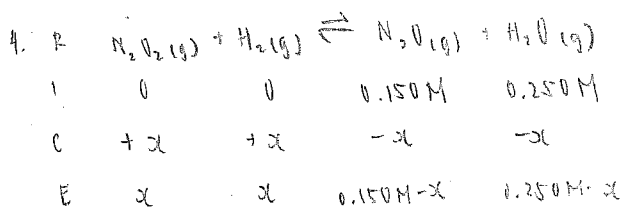 4. R N₂O₂(g) + H₂(g) ⇌ N₂O(g) + H₂O(g)
I 0 0 0.150M 0.250M
C +x +x -x -x
E x x 0.150M-x 0.250M-x